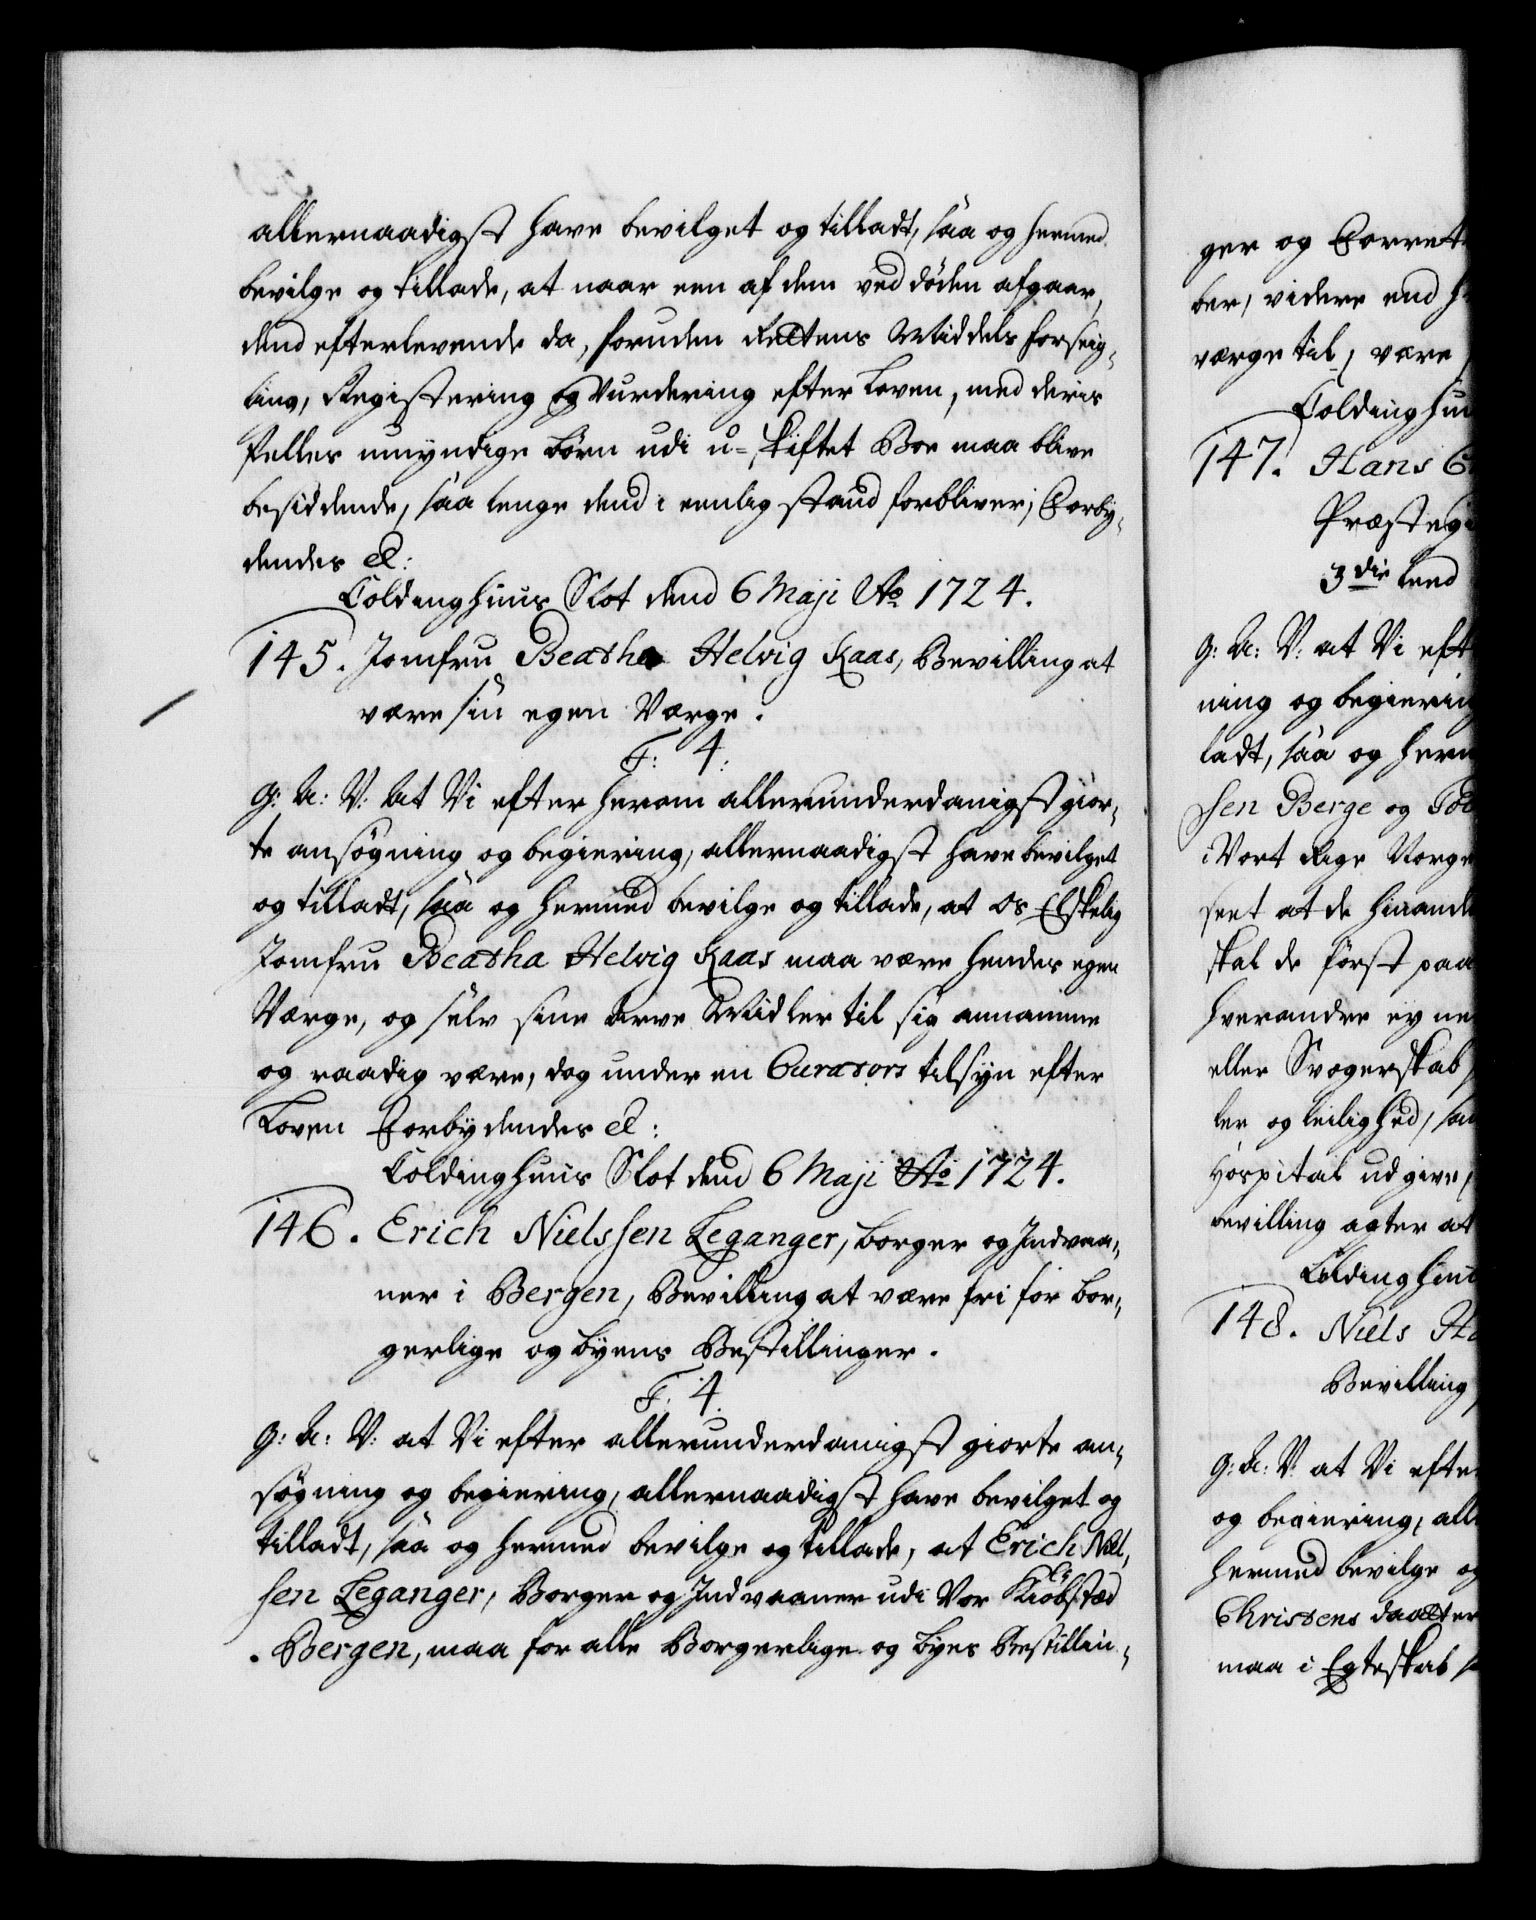 allernaadigst have bevilget og tilladt, saa og hermed
bevilge og tillade, at naar een af dem ved døden afgaar,
dend efterlevende da, foruden Rættens Middels forseig-
ling, Registering og Vurdering efter Loven, med deris
felles umyndige børn udi u-skiftet Boe maa blive
besiddende, saa lenge dend i eenlig stand forbliver; Forby-
dendes &:
Coldinghuus Slot dend 6 Maji Ao 1724.
145. Jomfru Beatha Helvig Kaas, Bevilling at
være sin egen Værge.
F: 4:
G: A: V: At Vi efter herom allerunderdanigst gior-
te ansøgning og begiering, allernaadigst have bevilget
og tilladt, saa og hermed bevilge og tillade, at Os Elskelig
Jomfru Beatha Helvig Kaas maa være hendes egen
Værge, og selv sine Arve Midler til sig annamme
og raadig være, dog under en Curators tilsyn efter
Loven Forbydendes &:
Coldinghuus Slot dend 6 Maji Ao 1724.
146. Erich Nielssen Leganger, borger og Indvaa-
ner i Bergen, Bevilling at være fri for bor-
gerlige og byens Bestillinger.
F. 4.
G: A: V: at Vi efter allerunderdanigst giorte an-
søgning og begiering, allernaadigst have bevilget og
tilladt, saa og hermed bevilge og tillade, at Erich Niel-
sen Leganger, Borger og Indvaaner udi Vor Kiøbstæd
Bergen, maa for alle Borgerlige og byes Bestillin-
ger og Forrett
ber, videre end
værge til, være
Coldinghuu
147. Hans
Præstegi
3die leed
G: A: V: at Vi eft
ning og begiering
ladt, saa og herm
sen Berge og
i Vort Rige Norge
seet at de hinande
skal de først paa
hverandre ey ne
eller Svogerskab
ler og leilighed, saa
Hospital udgive,
bevilling agter at
Coldinghuu
148. Niels
Bevilling
G: A: V: at Vi efte
og begiering, all
hermed bevilge og
Christens daatter
maa i Egteskab